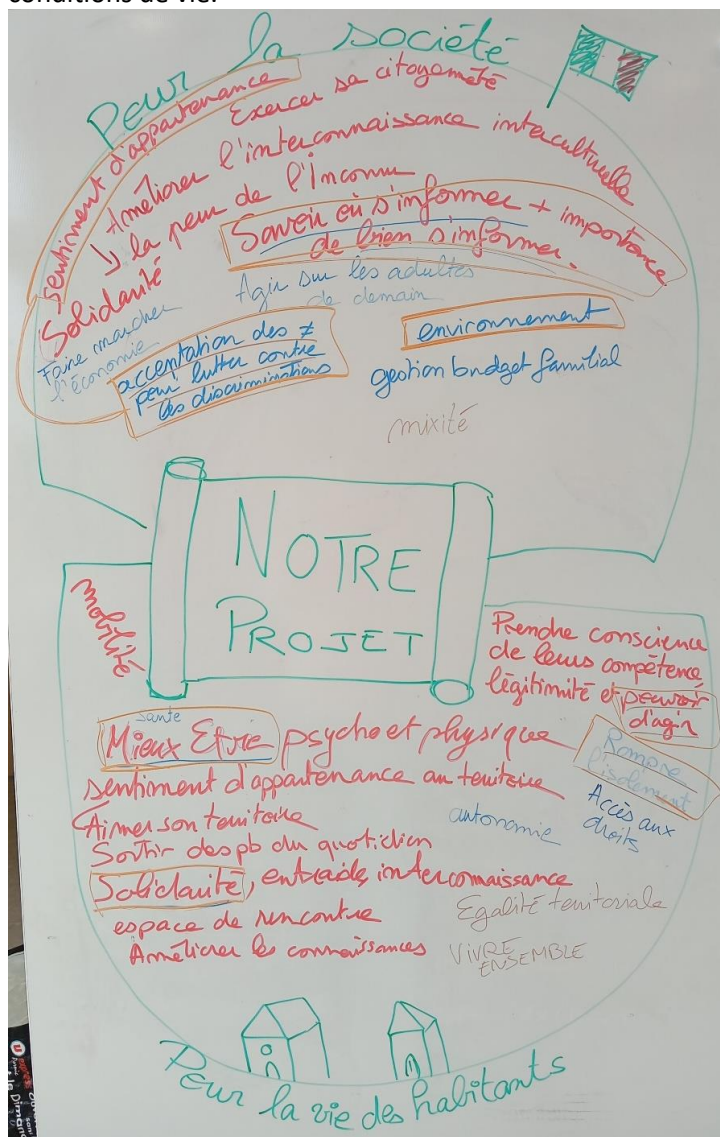 conditions de vie.
Pour la société
sentiment d'appartenance
Exercer sa citoyenneté
Améliorer l'interconnaissance interculturelle
↘ la peur de l'Inconnu
Savoir où s'informer + importance
de bien s'informer.
Solidarité
Agir sur les adultes
de demain
Faire marcher
l'économie
acceptation des ≠
pour lutter contre
les discriminations
environnement
gestion budget familial
mixité
NOTRE
PROJET
mobilité
Prendre conscience
de leurs compétence,
légitimité et pouvoir
d'agir
santé
Mieux Etre psycho et physique
Rompre
l'isolement
sentiment d'appartenance au territoire
Accès aux
droits
Aimer son territoire
autonomie
Sortir des pb du quotidien
Solidarité, entraide, interconnaissance
espace de rencontre
Egalité territoriale
Améliorer les connaissances
VIVRE
ENSEMBLE
Pour la vie des habitants